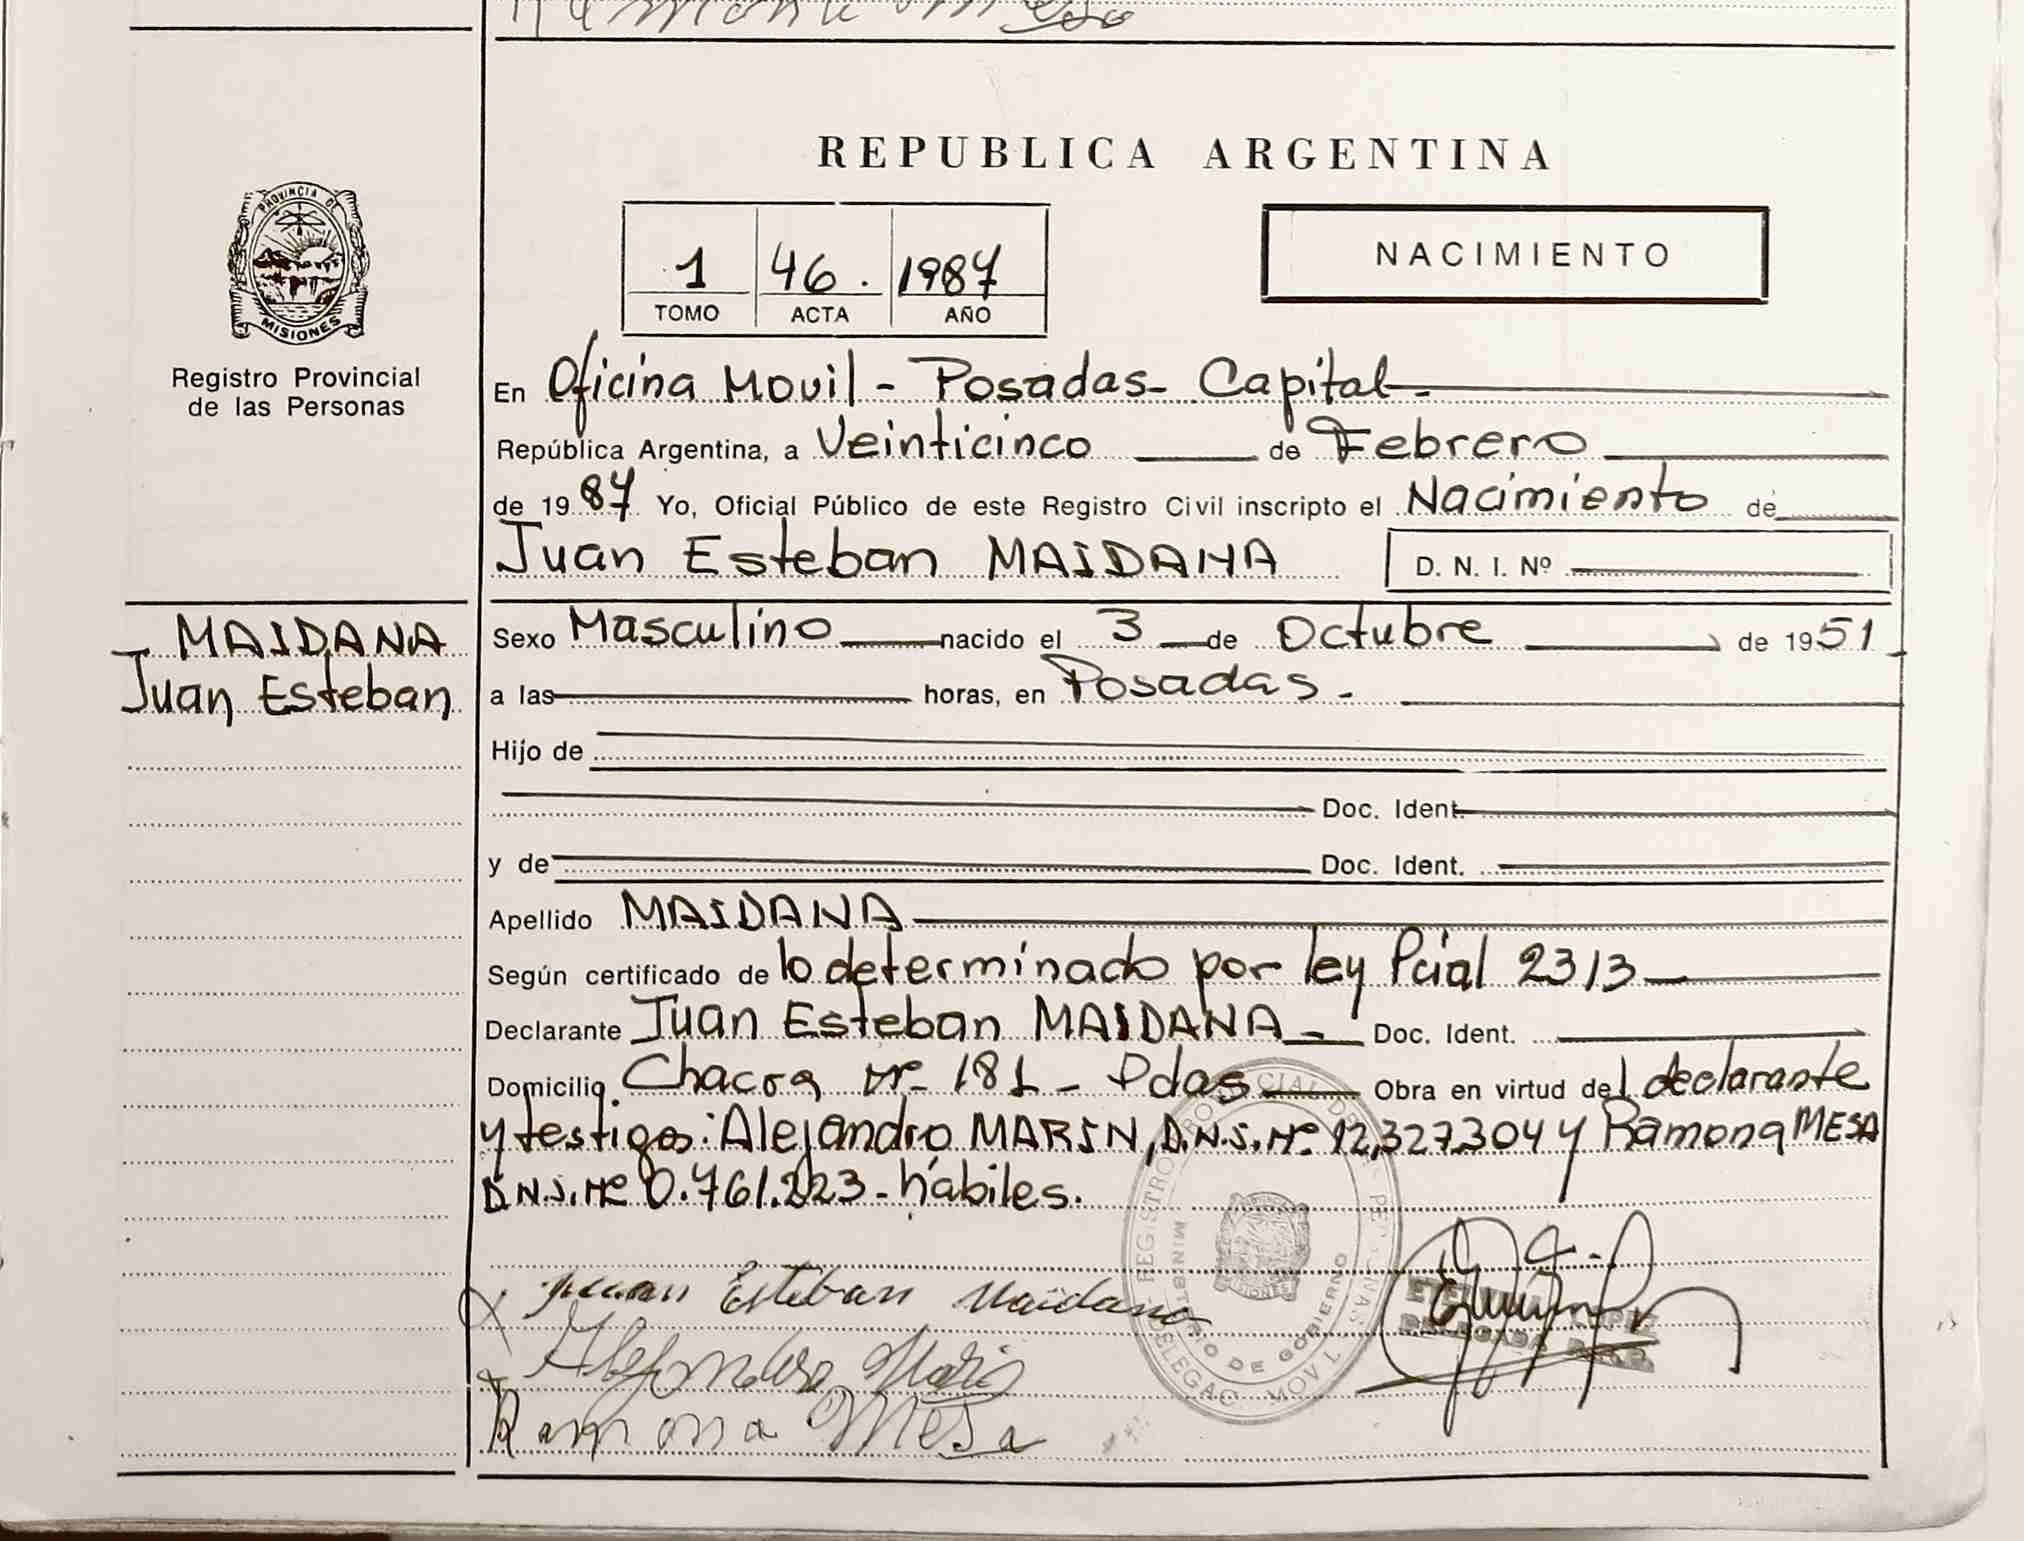 REPUBLICA ARGENTINA
PROVINCIA DE
MISIONES
Registro Provincial
de las Personas
1 46. 1987
TOMO ACTA AÑO
NACIMIENTO
En Oficina Movil - Posadas - Capital -
República Argentina, a Veinticinco de Febrero
de 1987 Yo, Oficial Público de este Registro Civil inscripto el Nacimiento de
Juan Esteban MAIDANA D. N. I. Nº
MAIDANA
Juan Esteban
Sexo Masculino nacido el 3 de Octubre de 1951
a las horas, en Posadas -
Hijo de
Doc. Ident.
y de Doc. Ident.
Apellido MAIDANA
Según certificado de lo determinado por ley Pcial 2313
Declarante Juan Esteban MAIDANA Doc. Ident.
Domicilio Chacra Nº 181 - Pdas Obra en virtud del declarante
y testigos: Alejandro MARIN, D.N.I. Nº 12,327304 y Ramona MESA
D.N.I. Nº 0.761.223 - hábiles.
Juan Esteban Maidana
Ramona Mesa
REGISTRO PROVINCIAL DE LAS PERSONAS
MINISTERIO DE GOBIERNO
DELEGAC. MOVIL